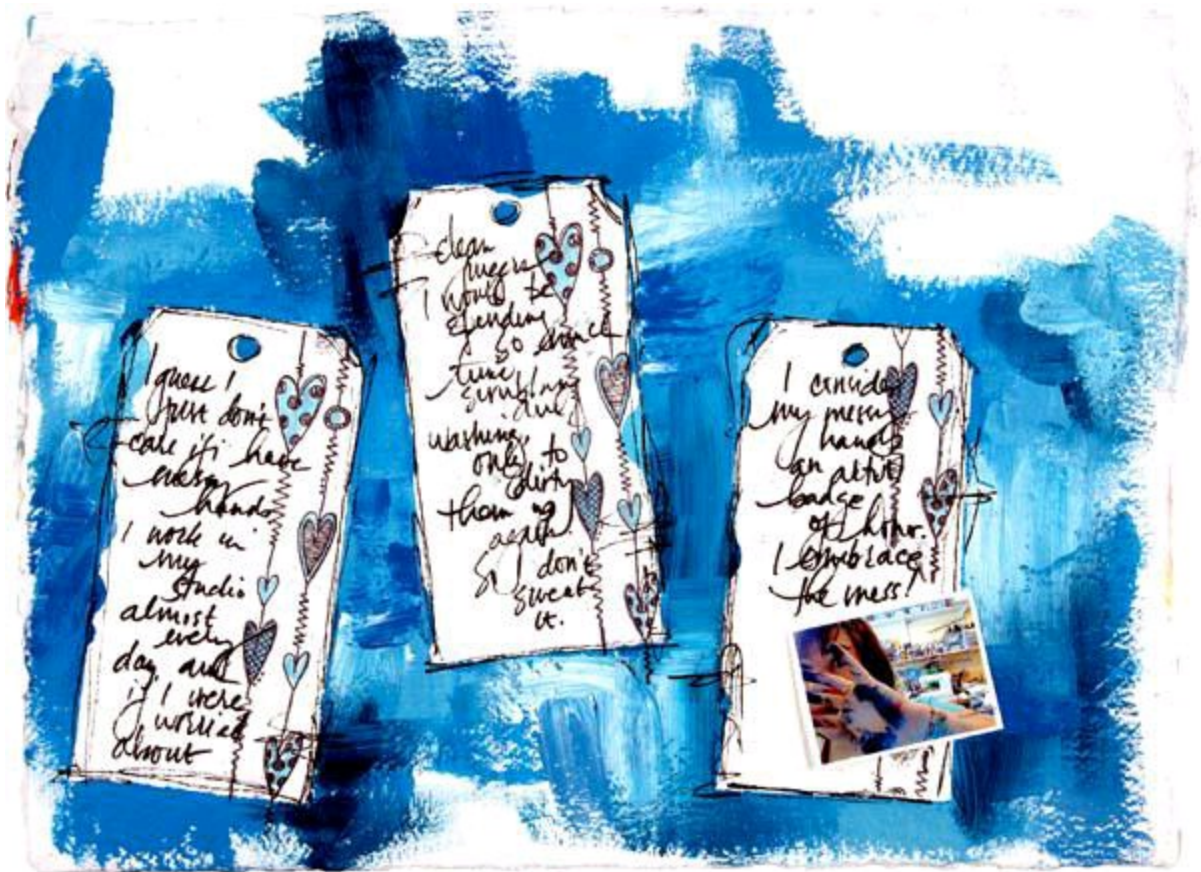 I guess I
just don't
care if i have
messy
hands
I work in
my
studio
almost
every
day and
if I were
worried
about
clean
I would be
spending
so much
time
scrubbing
and
washing,
only to
dirty
them up
again.
So I don't
sweat
it.
I consider
my messy
hands
an artist
badge
of honor.
I embrace
the mess!